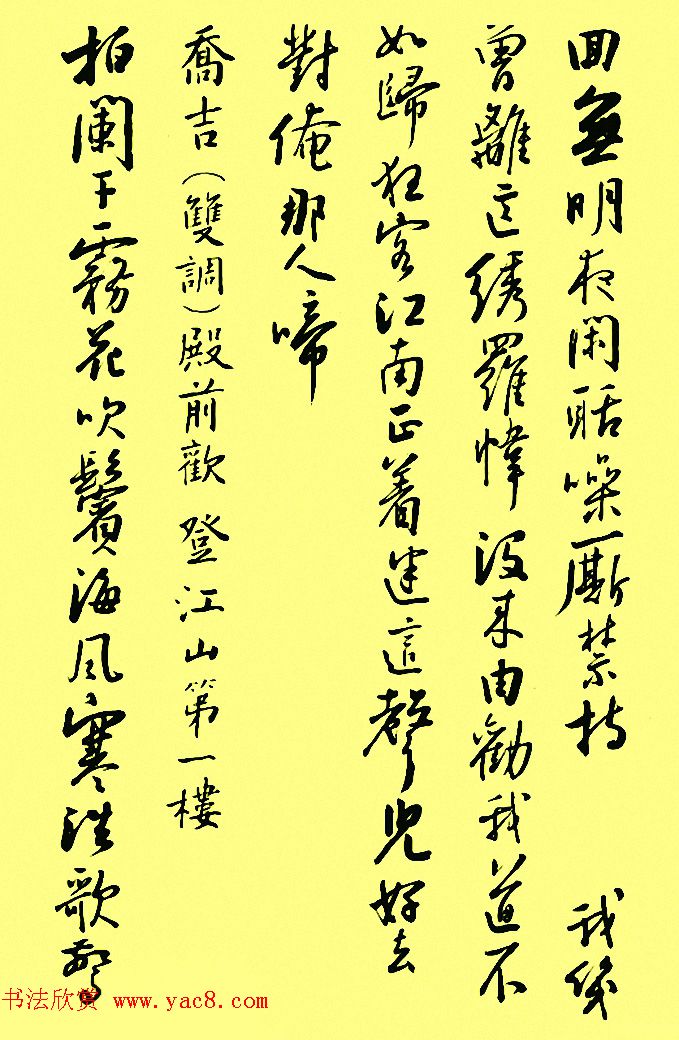 回無明夜閑聒噪廝禁持 我幾
曾離這綉羅幃没来由勸我道不
如歸狂客江南正着迷這聲兒好去
對俺那人啼
喬吉（雙調）殿前歡 登江山第一樓
拍闌干霧花吹鬢海風寒浩歌驚
书法欣赏 www.yac8.com